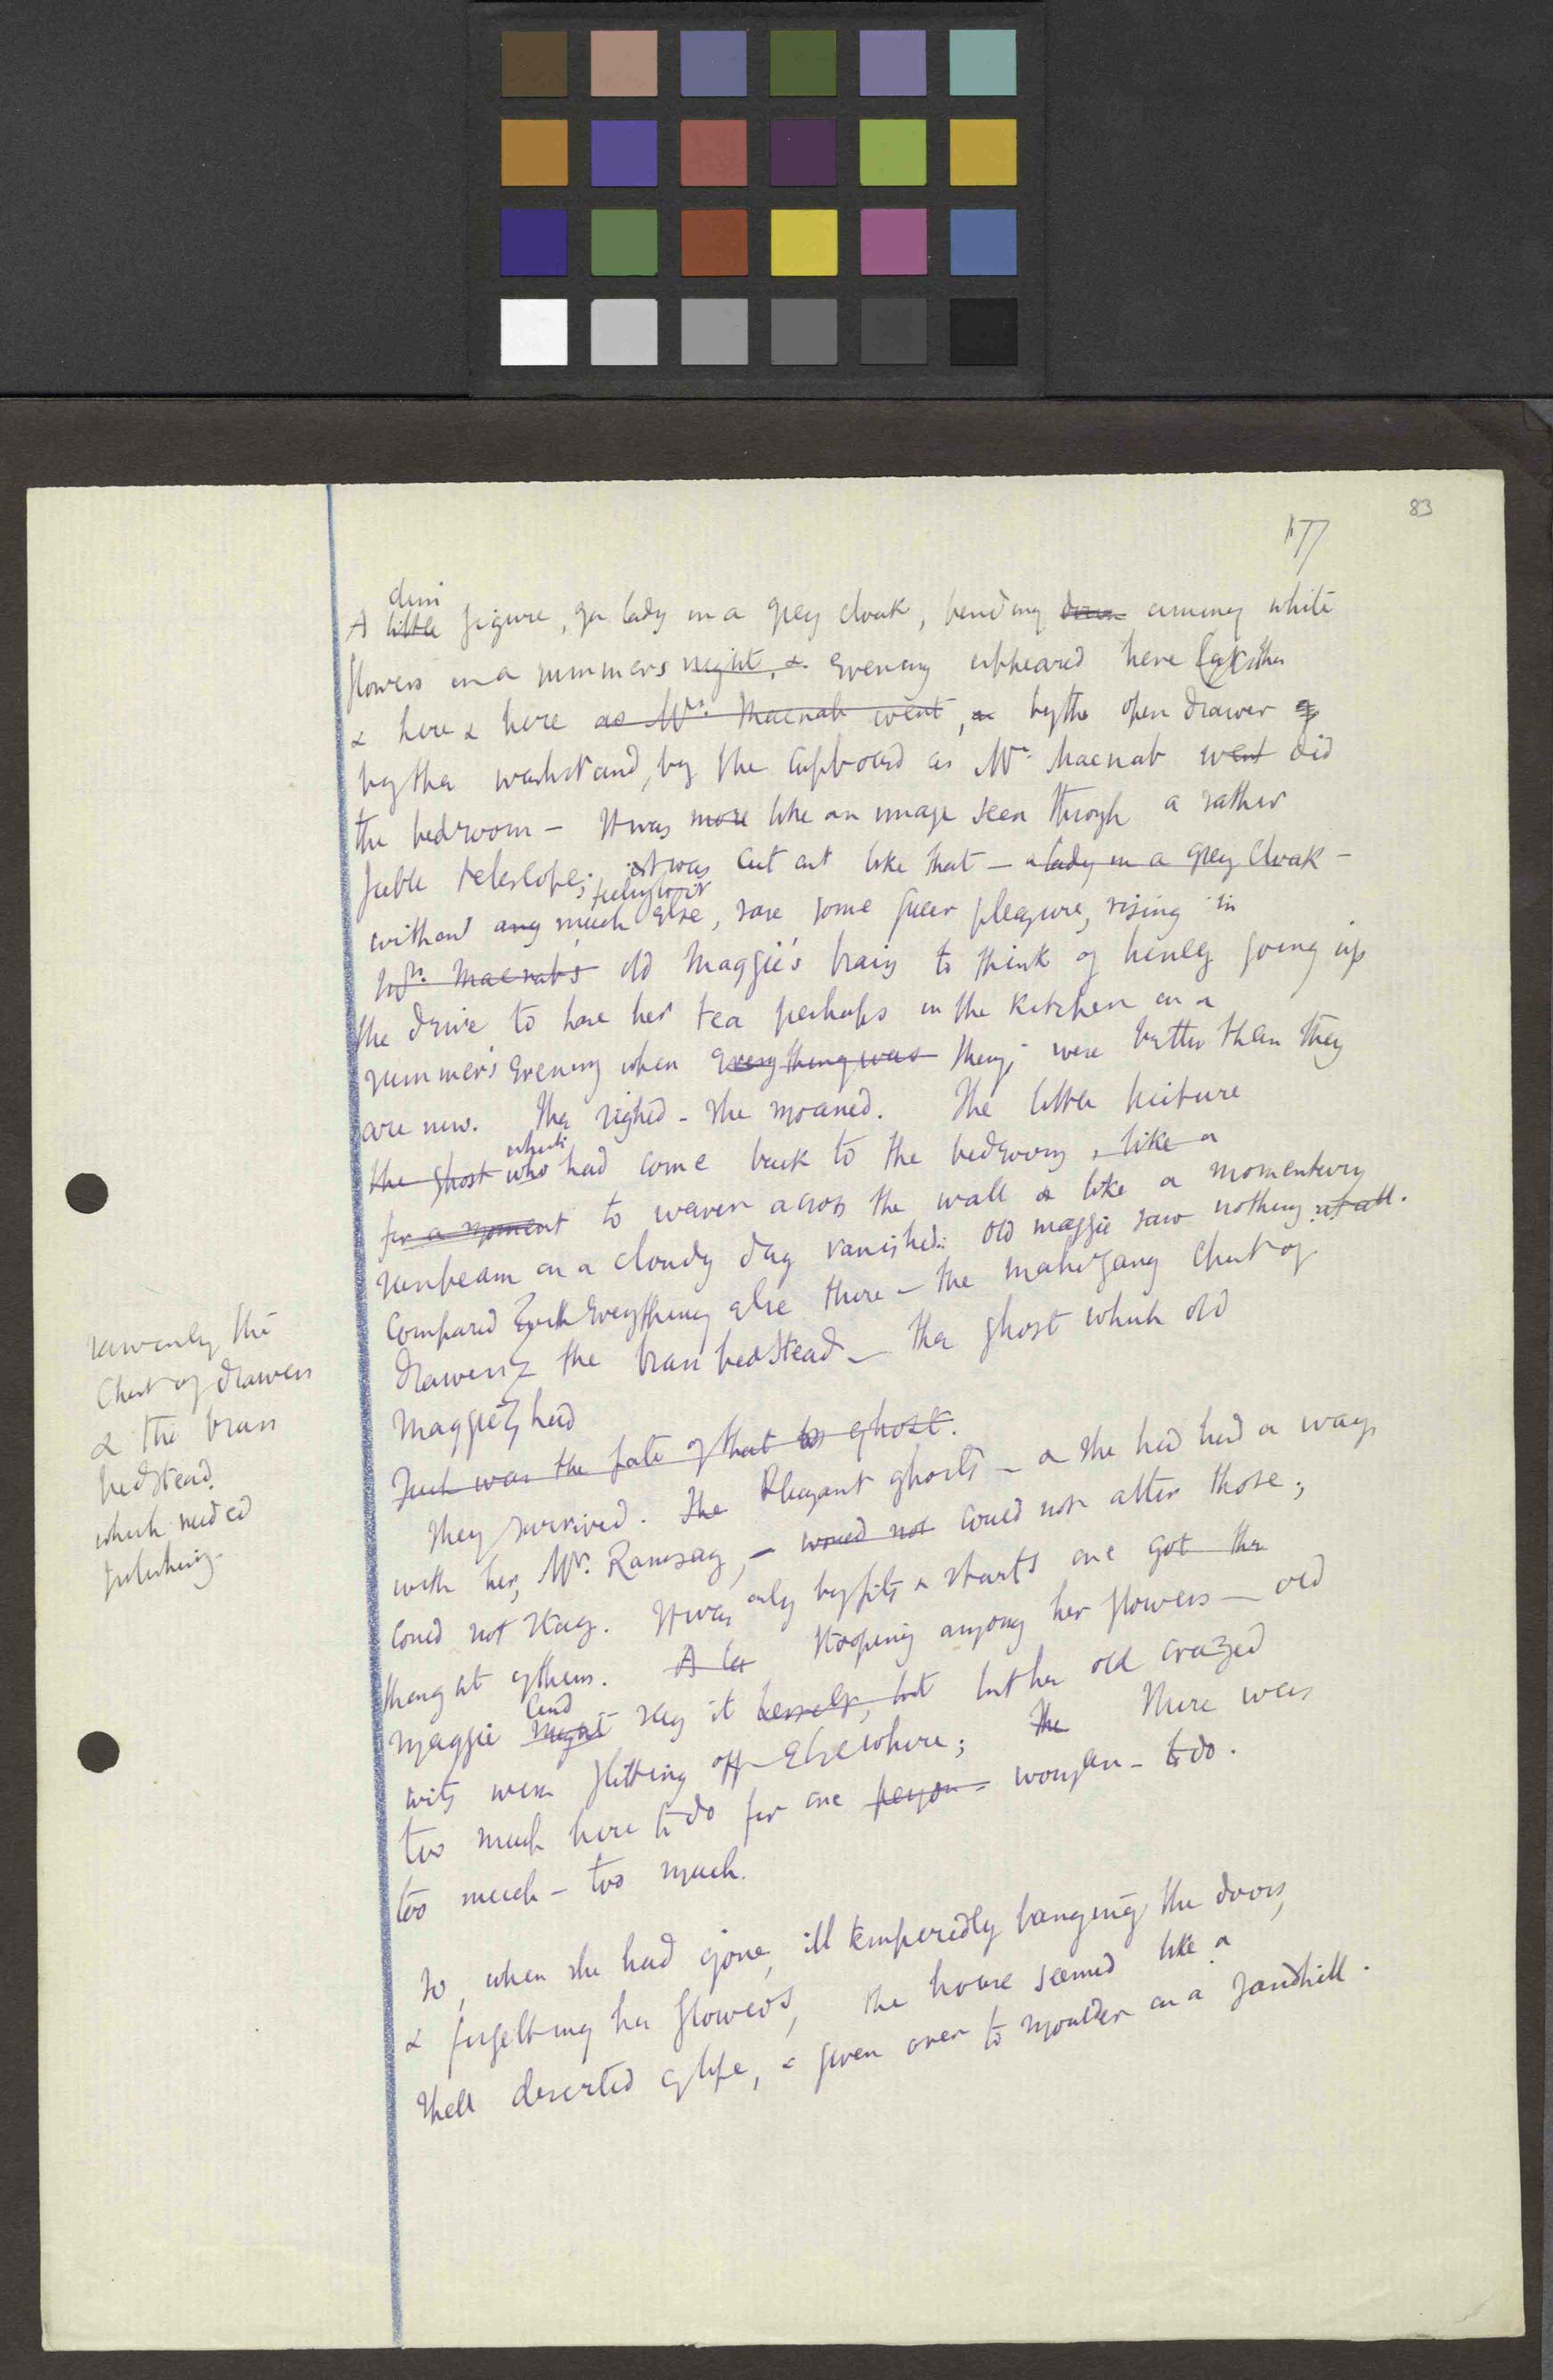 83
177
dim
A little figure, of a lady in a grey cloak, bending down among white
flowers on a summers night, & evening appeared here
& here & here as Mrs. Macnab went, & by the open drawer
by the washstand, by the cupboard as Mrs Macnab went did
the bedroom - It was more like an image seen through a rather
feeble telescope; it was cut out like that - a lady in a grey cloak -
without any much else, save some queer pleasure, rising in
Mrs. Macnab's old Maggie's brain to think of going up
the drive to have her tea perhaps in the kitchen on a
summer's evening when everything was things were better than they
are now. She sighed - she moaned. The little picture
which
the ghost who had come back to the bedroom, like a
for a moment to waver across the wall & like a momentary
sunbeam on a cloudy day vanished: Old Maggie saw nothing at all.
compared with everything else there - the mahogany chest of
drawers, the brass bedstead - the ghost which old
Maggie had
Such was the fate of that ghost.
They survived. The Pleasant ghosts - & she had had a way
with her, Mrs. Ramsay, - would not could not alter those;
could not stay. It was only by fits & starts one got the
thought of them. A la stooping among her flowers - old
could
Maggie might say it herself, but but her old crazed
wits were flitting off elsewhere; The There was
too much here to do for one person - woman - to do.
too much - too much.
So, when she had gone, ill temperedly banging the doors,
& forgetting her flowers, the house seemed like a
shell deserted of life, & given over to moulder on a sandhill.
the
chest of drawers
& the brass
bedstead.
which needed
polishing.